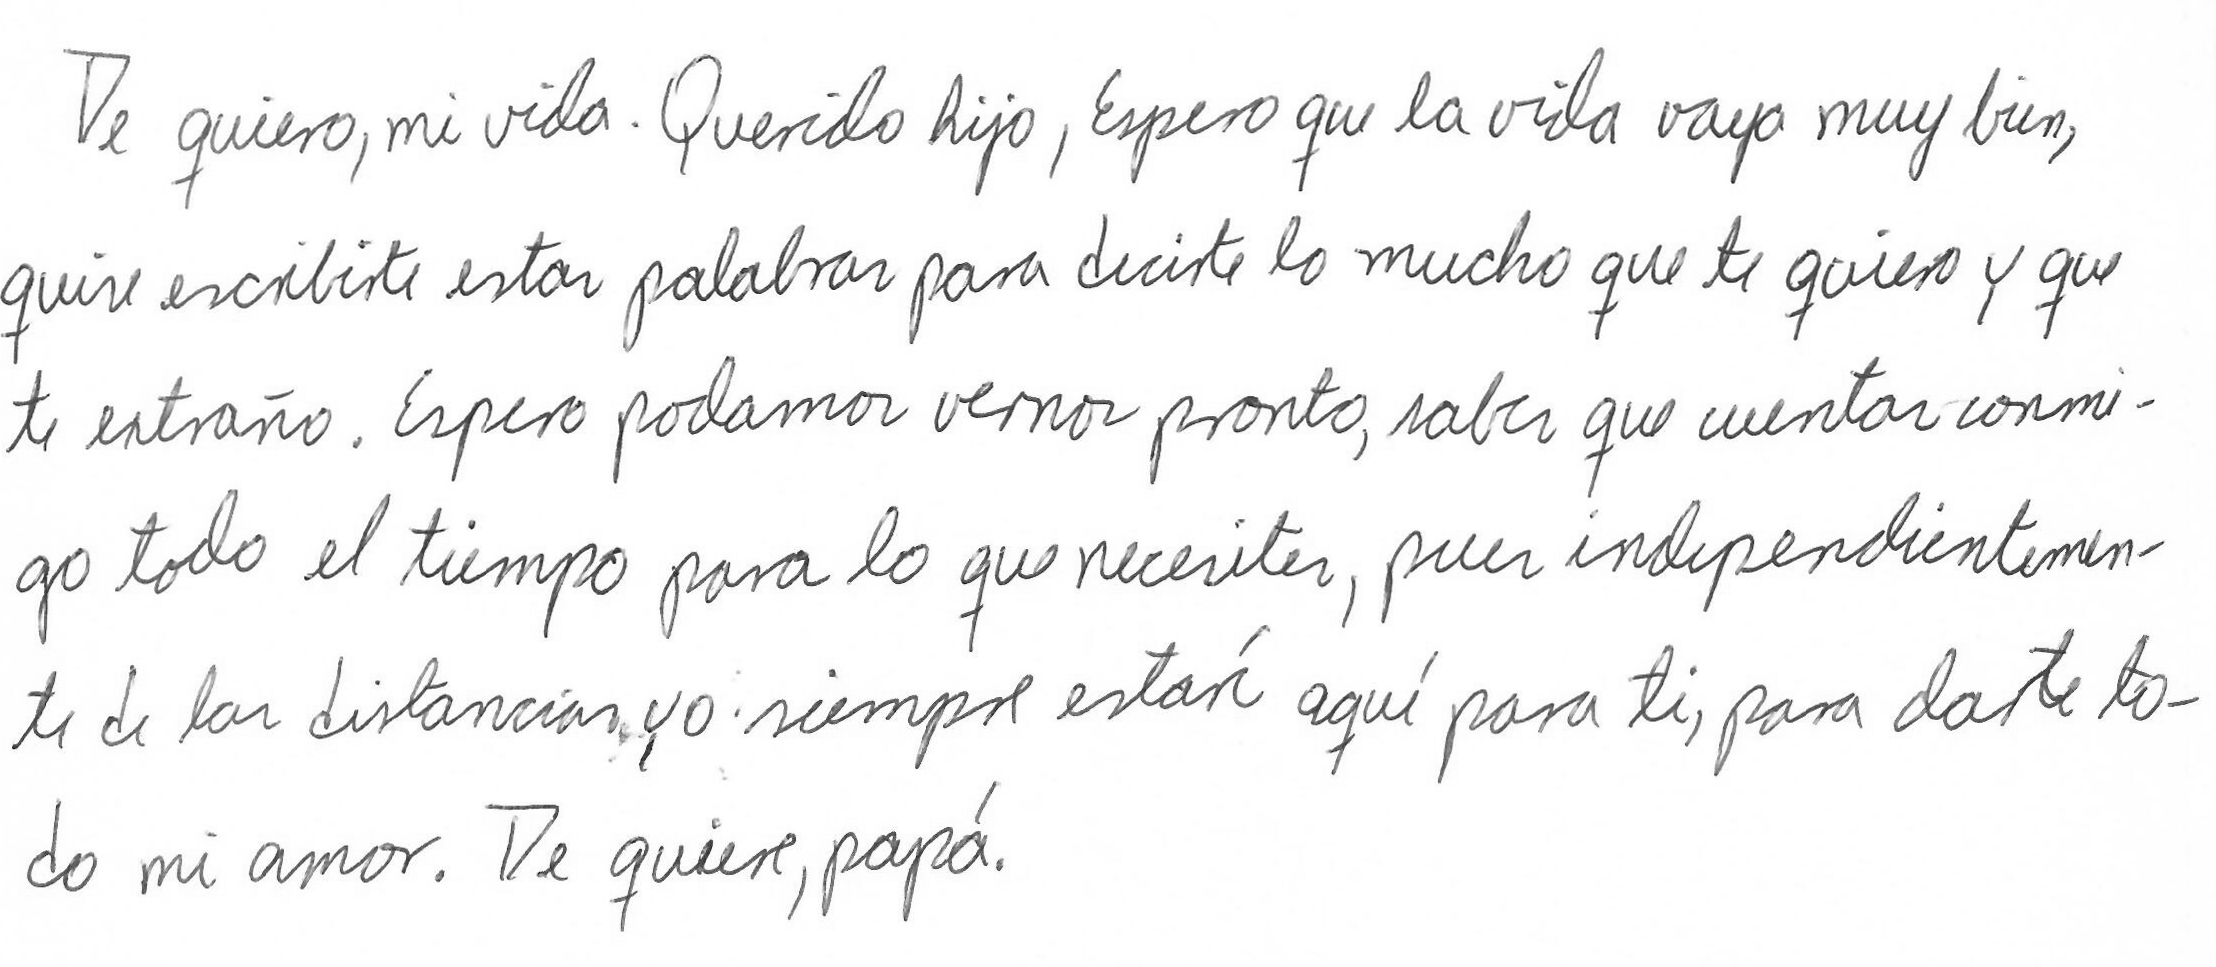 Te quiero, mi vida. Querido hijo, Espero que la vida vaya muy bien,
quise escribirte estas palabras para decirte lo mucho que te quiero y que
te extraño. Espero podamos vernos pronto, sabes que cuentas conmi-
go todo el tiempo para lo que necesites, pues independientemen-
te de las distancias, yo siempre estaré aquí para ti, para darte to-
do mi amor. Te quiere, papá.